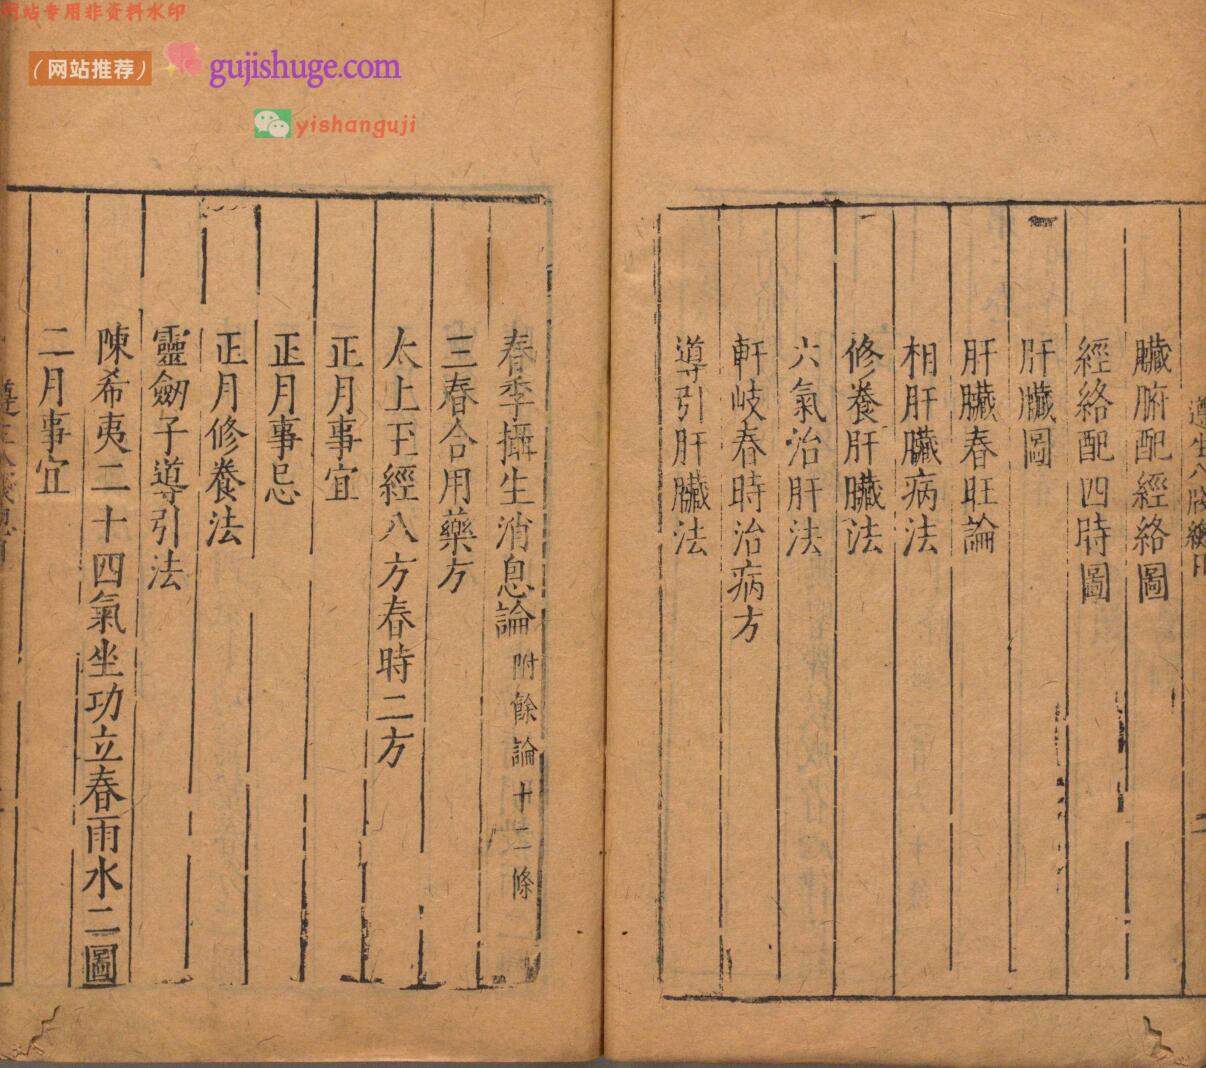 网站专用非资料水印
（网站推荐）
gujishuge.com
yishanguji
臟腑配經絡圖
經絡配四時圖
肝臟圖
肝臟春旺論
相肝臟病法
修養肝臟法
六氣治肝法
軒岐春時治病方
導引肝臟法
春季攝生消息論 附餘論十二條
三春合用藥方
太上玉經八方春時二方
正月事宜
正月事忌
正月修養法
靈劒子導引法
陳希夷二十四氣坐功立春雨水二圖
二月事宜